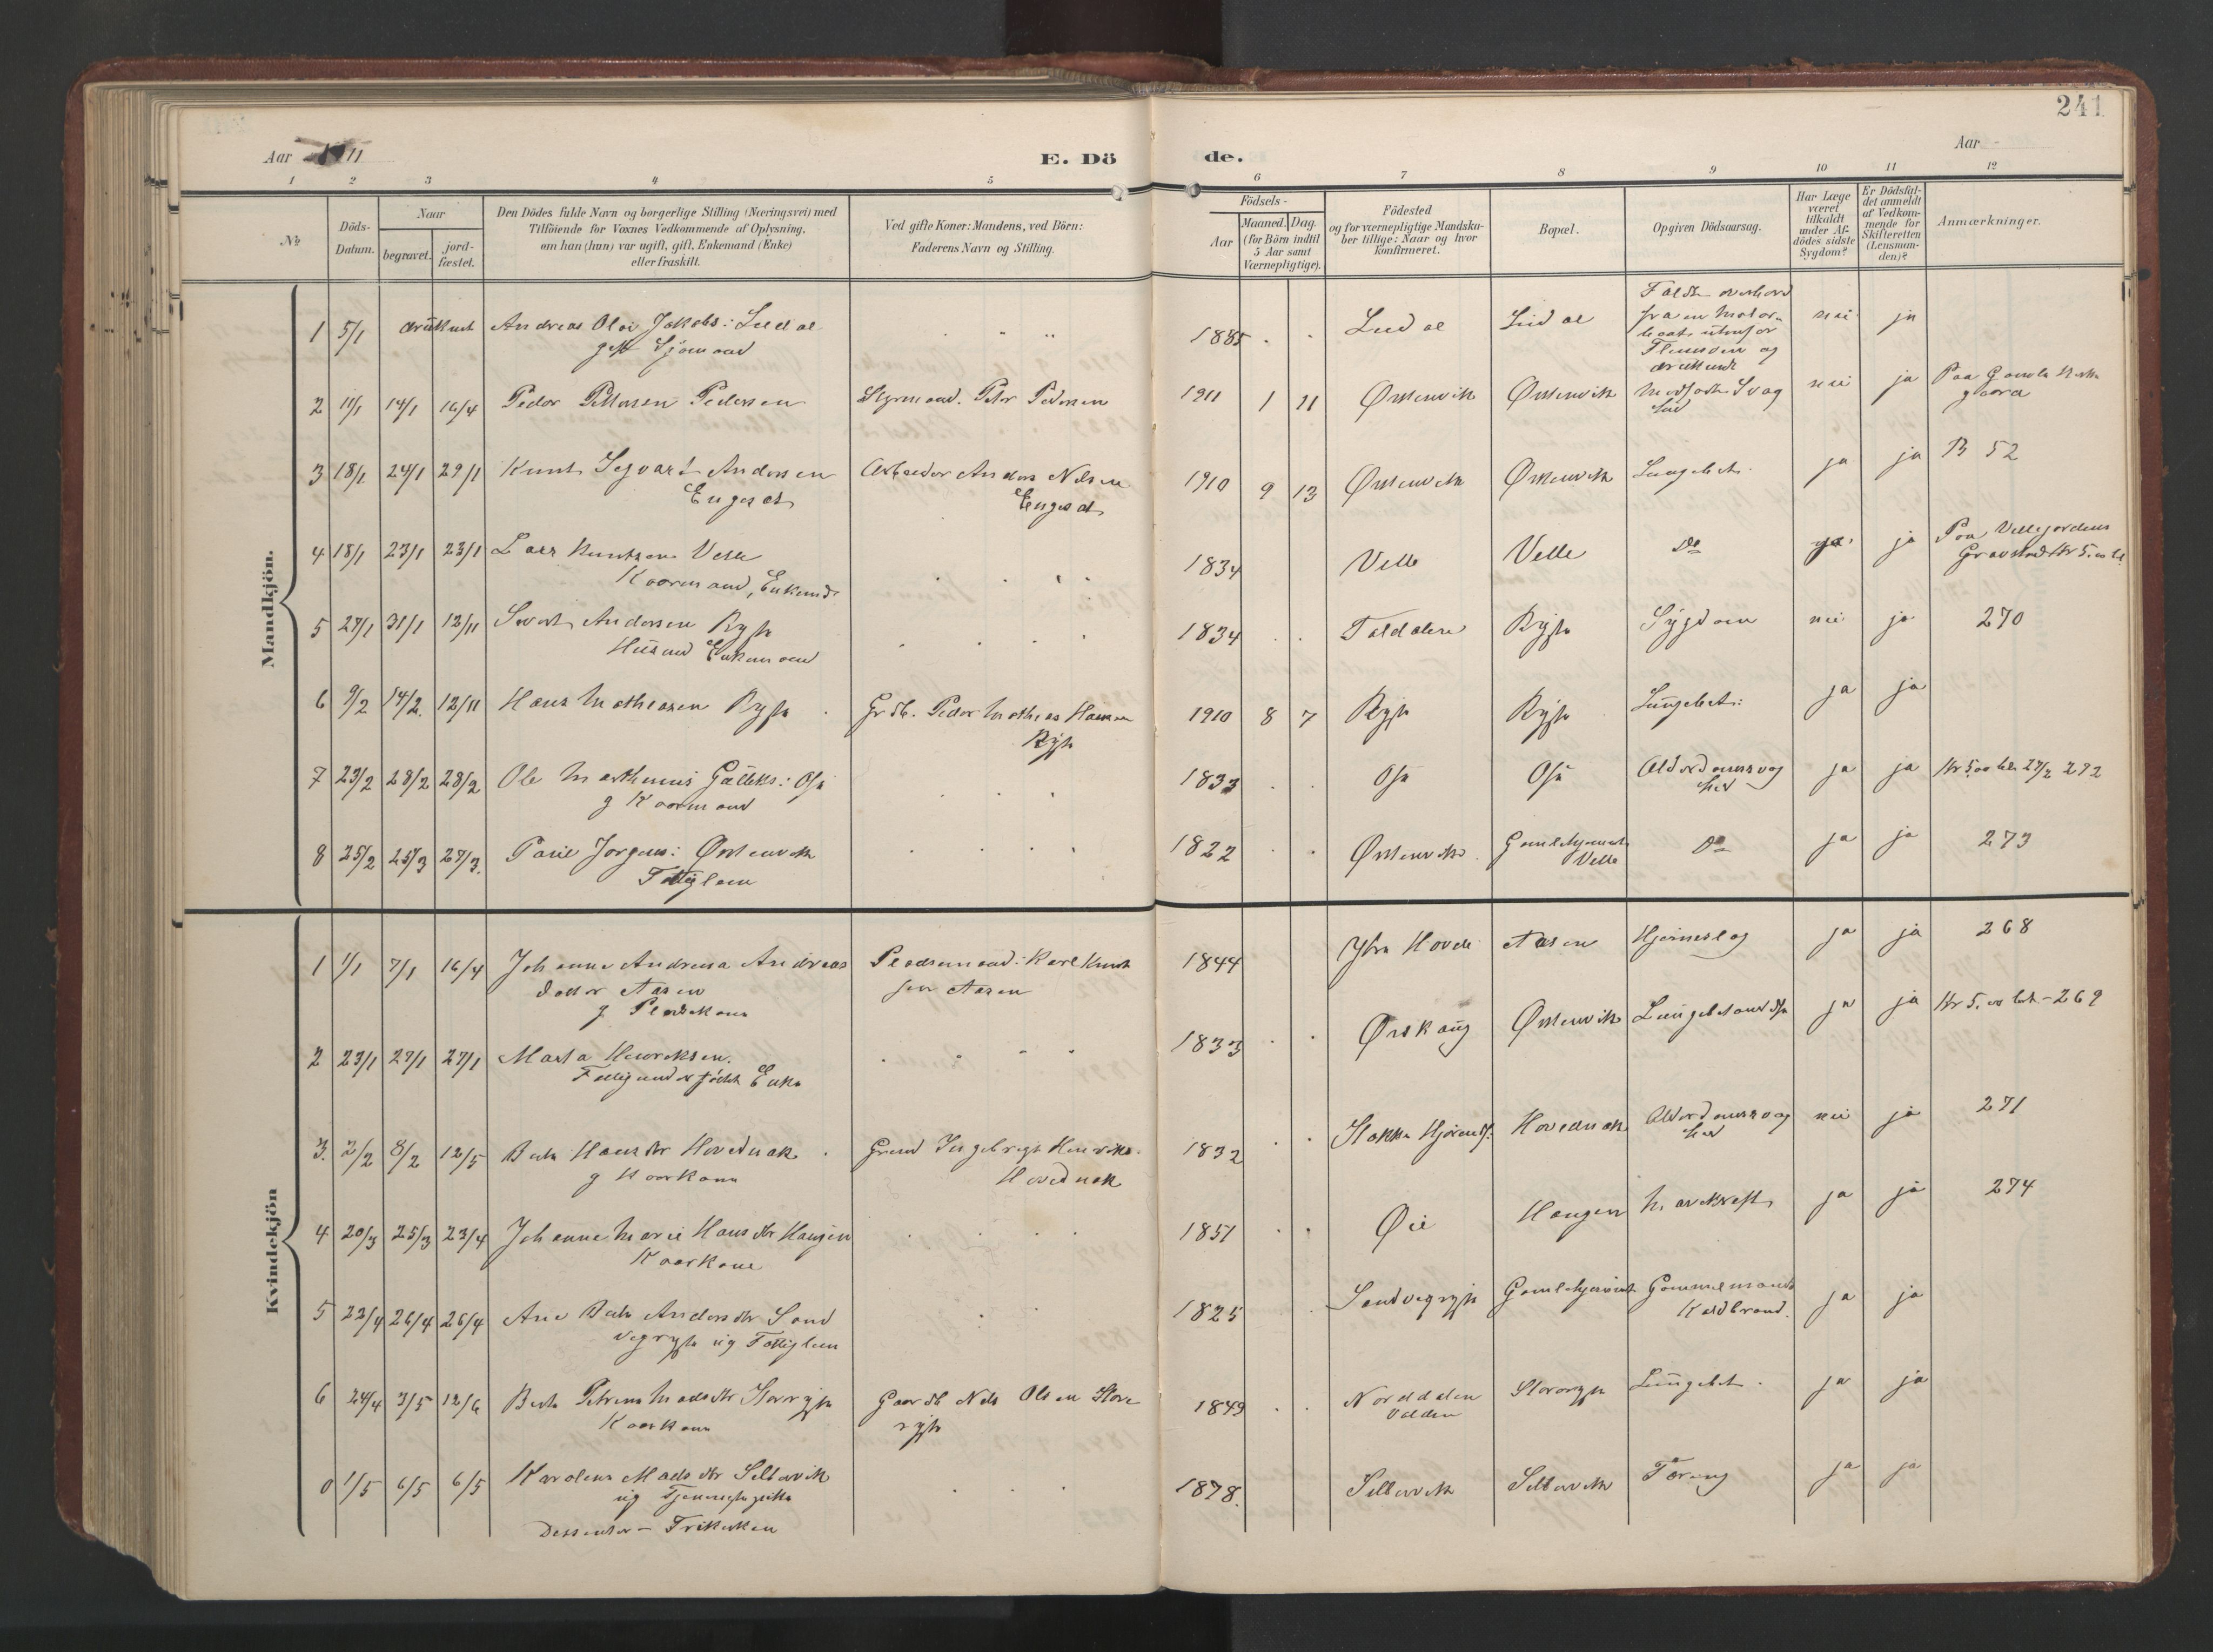 241
Aar 1911
E. Döde.
Aar
1 2 3 4 5 6 7 8 9 10 11 12
Nr.
Döds-Datum.
Naar
begravet.
jord-fæstet.
Den Dödes fulde Navn og borgerlige Stilling (Næringsvei) med
Tilföiende for Voxnes Vedkommende af Oplysning,
om han (hun) var ugift, gift, Enkemand (Enke)
eller fraskilt.
Ved gifte Koner: Mandens, ved Börn:
Faderens Navn og Stilling.
Födsels-
Aar
Maaned. Dag.
(for Börn indtil
5 Aar samt
Værnepligtige).
Födested
og for værnepligtige Mandska-
ber tillige: Naar og hvor
Konfirmeret.
Bopæl.
Opgiven Dödsaarsag.
Har Læge
været
tilkaldt
under Af-
dödes sidste
Sygdom?
Er Dödsfal-
det anmeldt
af Vedkom-
mende for
Skifteretten
(Lensman-
den)?
Anmærkninger.
Mandkjön.
1 5/1 druknet Andreas Olai Jakobs: 1885 nei ja
gift Sjömand
fra en Motor-
og
druknede
2 11/1 14/1 16/4 Peder Pettersen Pedersen Styrmand. Peter Pedersen 1911 1 11 Ørstenvik Ørstenvik Medfødt Svag hed nei ja Paa Gamle Kirke gaard
3 18/1 24/1 29/1 Knut Sigvart Andersen Engeset Arbeider Anders Nilsen Engeset 1910 9 13 Ørstenvik Ørstenvik Lungebet. ja ja B 52
4 18/1 23/1 23/1 Lars Knutsen Velle 1834 Velle Velle Do ja ja Paa Vellegardens Gravsted Kr 5.00 bt.
Kaarmand, Enkemd.
5 27/1 31/1 12/11 Andersen Rypt 1834 Rypt Sygdom nei ja 270
Husmd Enkemand
6 9/2 14/2. 12/11 Hans Mathiasen Rypt Grdb. Peder Mathias Hansen Rypt 1910 8 7 Rypt Rypt Lungebet: ja ja
7 23/2 28/2 28/2 Ole Marthinus 1833 Alderdomssvag hed ja ja Kr 5.00 bt. 27/2 272
g Kaarmand
8 25/2 25/3 27/3. Jörgens: Ørstenvik 1822 Ørstenvik. Gamlehjemmet Velle Do ja ja 273
Fattiglem
Kvindekjön
1 1/1 7/1 16/4 Johanne Andrea Andreas 1844 Hovde Aasen Hjerneslag ja ja 268
dotter Aasen
Pladsmand: Karl Knut
sen Aasen
g Pladskone
2 23/1 27/1 27/1 Marta Henriksen. 1833 Ørskaug Ørstenvik Lungebetændelse ja ja Kr 5.00 bet. - 269
Fattigunderstöttet Enke
3. 2/2 8/2 12/5 Hansdtr Hovdenak 1832 Hovdenak Alderdomssvag hed nei ja 271
g Kaarkone
Ingebrigt Henriks.
Hovdenak
4 20/3 25/3 23/4 Johanne Marie Hansdtr Haugen 1851 Øie Haugen Mavekræft ja ja 274
Kaarkone
5 22/4 26/4 26/4 Ane Andersdtr Sand 1825 Gamlehjemmet Gammelmands Koldbrand. ja ja
ug Fattiglem
6 24/4 3/5 12/6 Petrine Madsdtr 1849 Norddalen Lungebet. ja ja
Kaarkone
Gaardb Nils Olsen Store
0 1/5 6/5 6/5 Karoline Madsdtr Sætervik 1878. Sætervik Sætervik Tæring ja ja
ug Tjenestepike
Dessenter - Frikirken